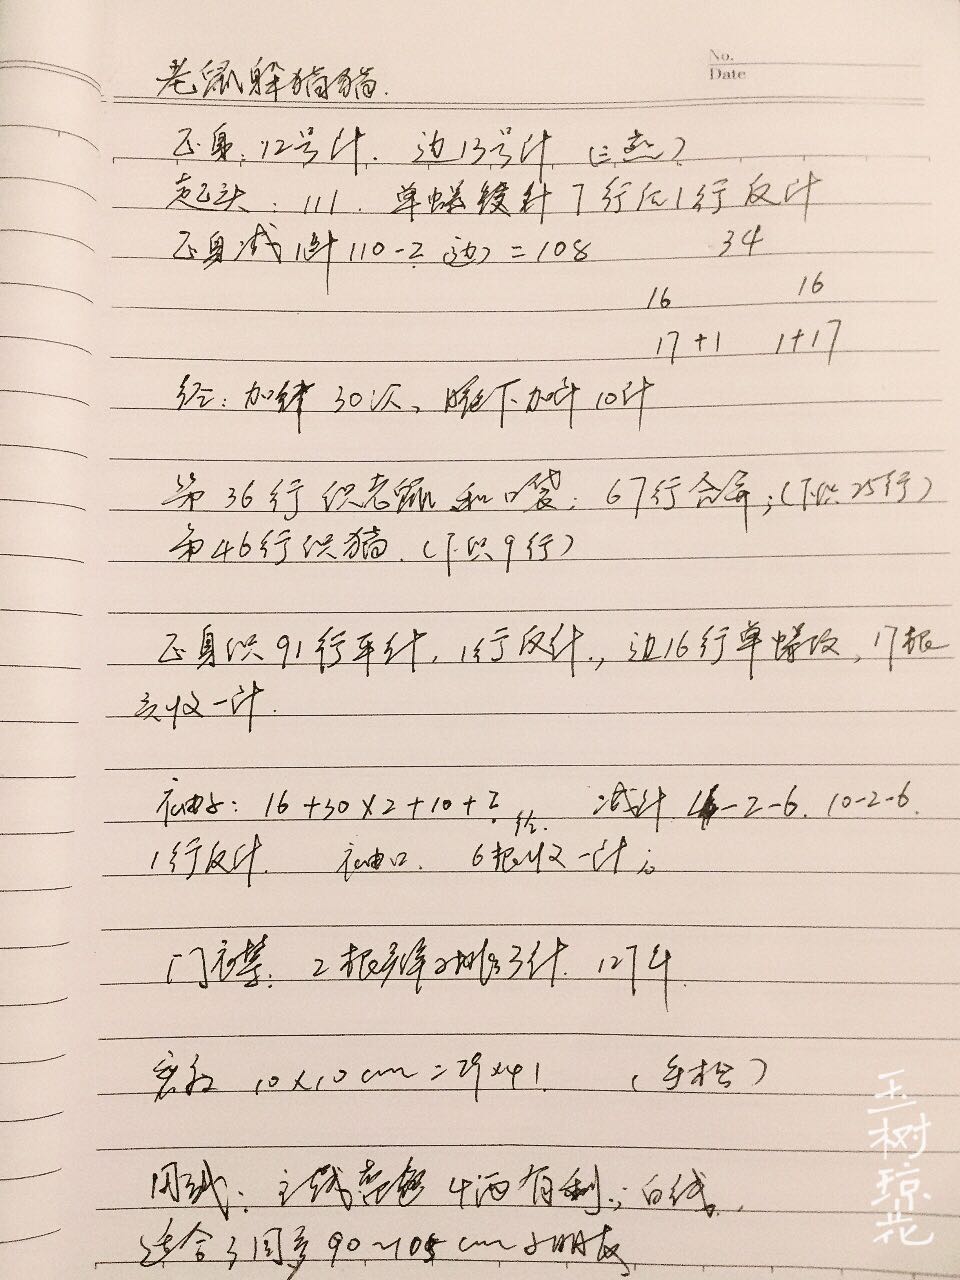 No.
Date
老鼠躲猫猫.
正身: 12号针. 边13号针 (三燕)
起头: 111. 单螺纹针 7行后1行反针
正身减1针 110-2 边 = 108 34
16 16
17+1 1+17
径: 加针 30次、腋下加针 10针
第36行织老鼠和口袋; 67行合并; (下织25行)
第46行织猫. (下织9行)
正身织91行平针, 1行反针., 边16行单螺纹, 17根
收一针.
衣袖: 16+30×2+10+2 径. 减针 4-2-6. 10-2-6.
1行反针. 衣袖口. 6根收一针;
门衣襟: 2根 挑3针. 127针
密度 10×10cm=29×41. (手松)
用线: 主线 4 有利; 白线.
适合3周岁90~105cm小朋友
玉树琼花